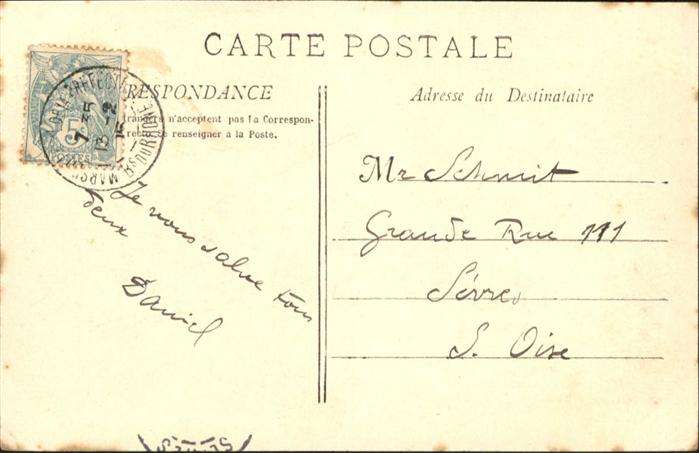 CARTE POSTALE
RESPONDANCE
trangers n'acceptent pas la Correspon-
se renseigner à la Poste.
Je vous salue tous
deux
Daniel
Adresse du Destinataire
Mr Schmit
Grande Rue 111
Sèvres
S. Oise
5